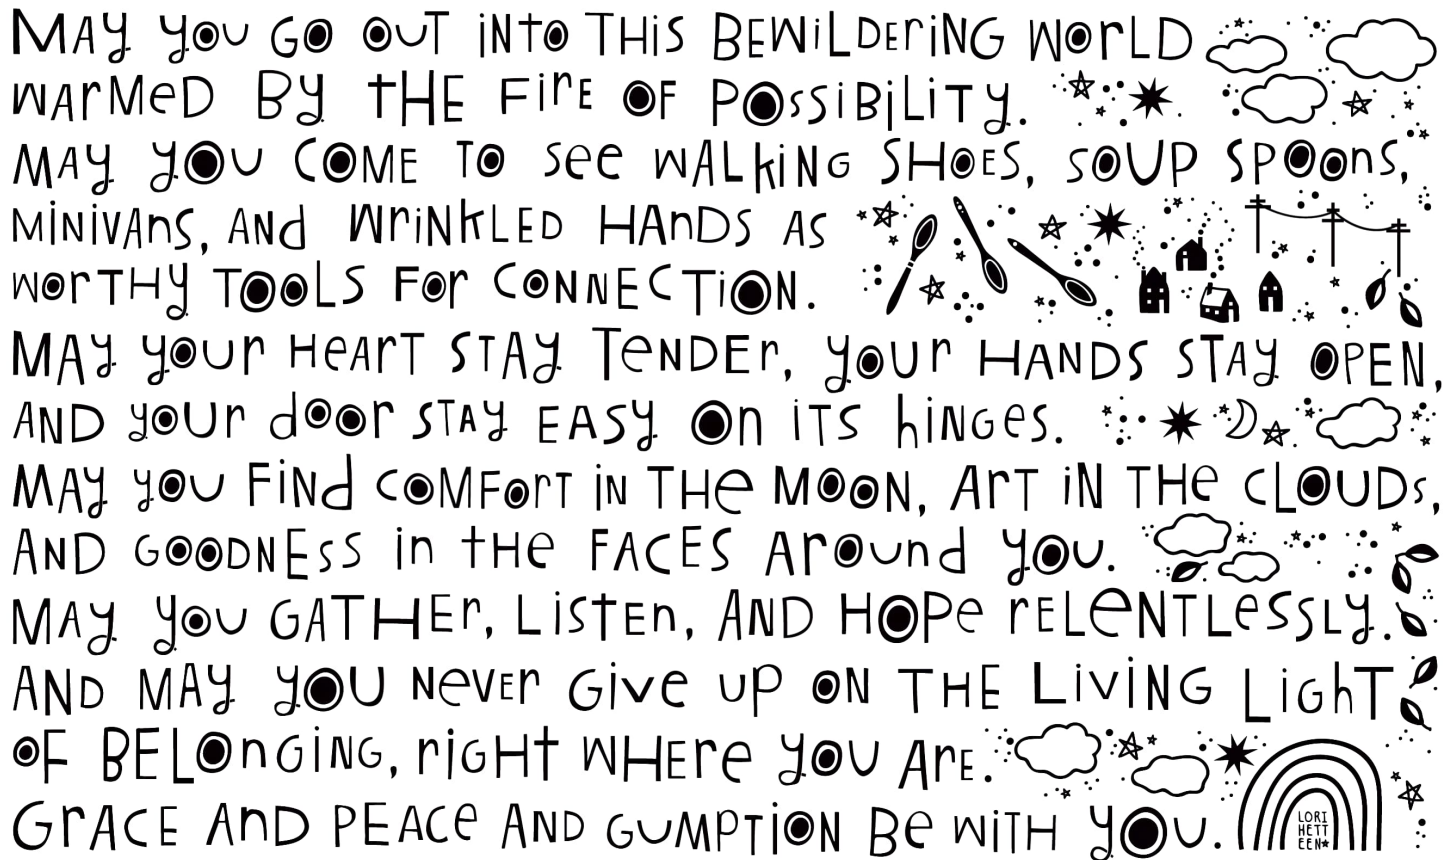 MAY YOU GO OUT INTO THIS BEWILDERING WORLD
WARMED BY THE FIRE OF POSSIBILITY.
MAY YOU COME TO SEE WALKING SHOES, SOUP SPOONS,
MINIVANS, AND WRINKLED HANDS AS
WORTHY TOOLS FOR CONNECTION.
MAY YOUR HEART STAY TENDER, YOUR HANDS STAY OPEN,
AND YOUR DOOR STAY EASY ON ITS HINGES.
MAY YOU FIND COMFORT IN THE MOON, ART IN THE CLOUDS,
AND GOODNESS IN THE FACES AROUND YOU.
MAY YOU GATHER, LISTEN, AND HOPE RELENTLESSLY.
AND MAY YOU NEVER GIVE UP ON THE LIVING LIGHT
OF BELONGING, RIGHT WHERE YOU ARE.
GRACE AND PEACE AND GUMPTION BE WITH YOU.
LORI
HETT
EEN